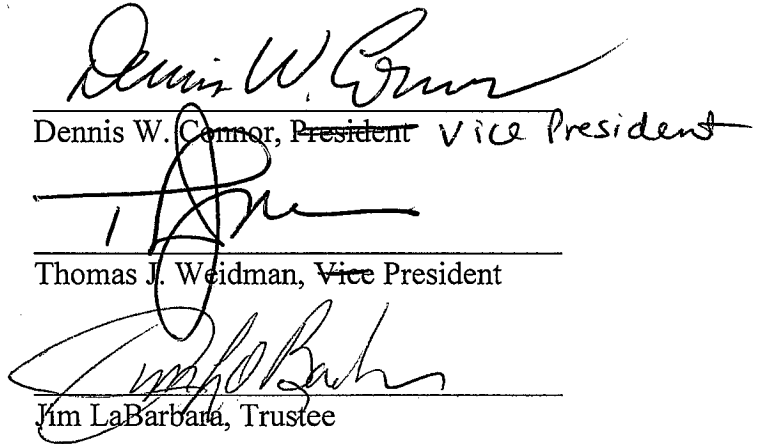 Dennis W. Connor
Dennis W. Connor, President Vice President
Thomas J. Weidman, Vice President
Jim LaBarbara, Trustee